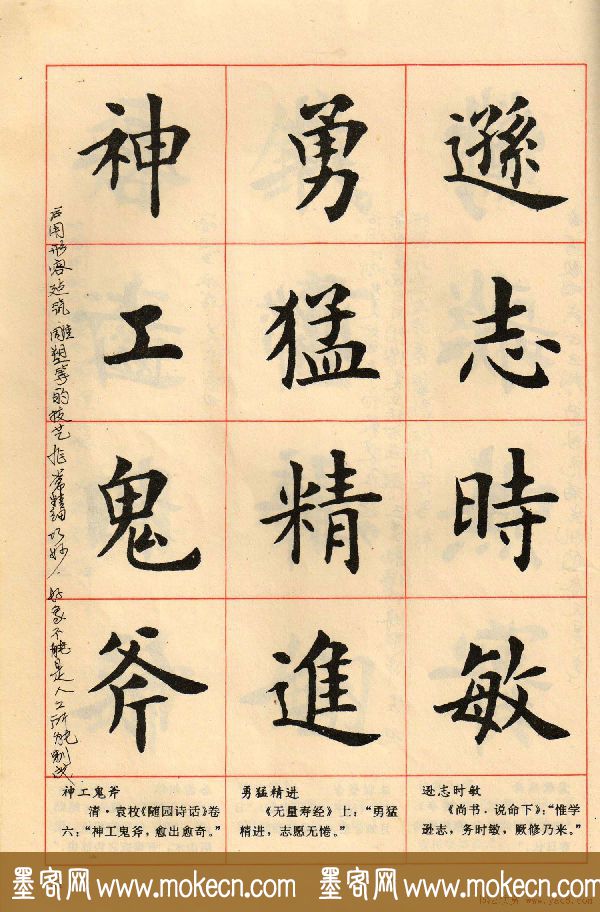 遜志時敏
勇猛精進
神工鬼斧
应用形容建筑雕塑等的技艺非常精细巧妙、好象不能是人工所能制成
逊志时敏
《尚书·说命下》：“惟学
逊志，务时敏，厥修乃来。”
勇猛精进
《无量寿经》上：“勇猛
精进，志愿无倦。”
神工鬼斧
清·袁枚《随园诗话》卷
六：“神工鬼斧，愈出愈奇。”
墨客网 www.mokecn.com 墨客网 www.mokecn.com